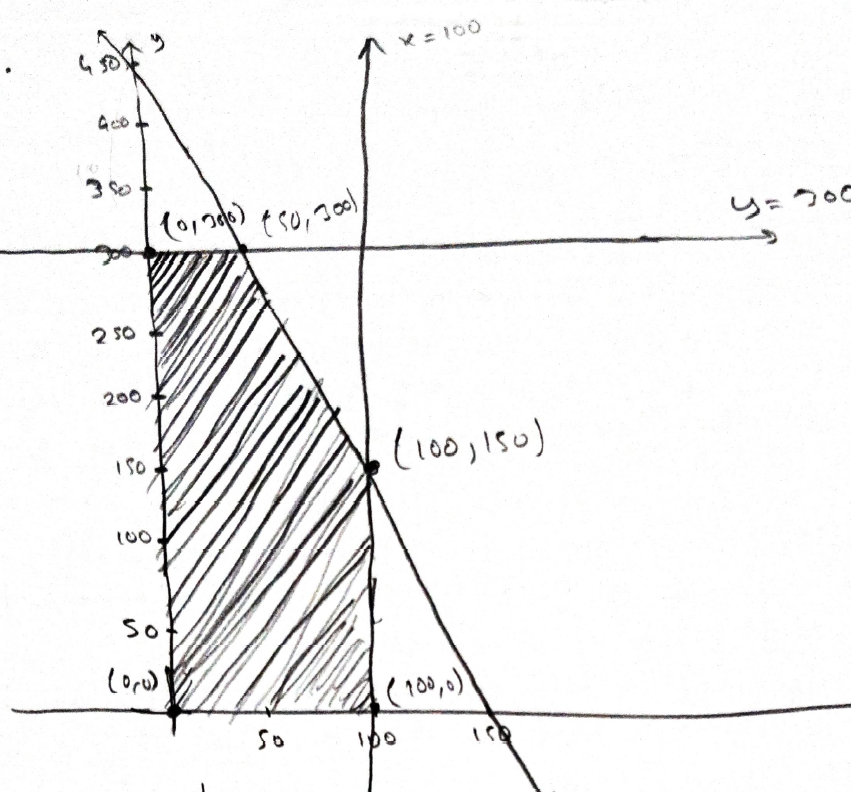 x = 100
y
450
400
350
y = 300
(0,300) (50,300)
300
250
200
150
(100,150)
100
50
(0,0)
(100,0)
50 100 150